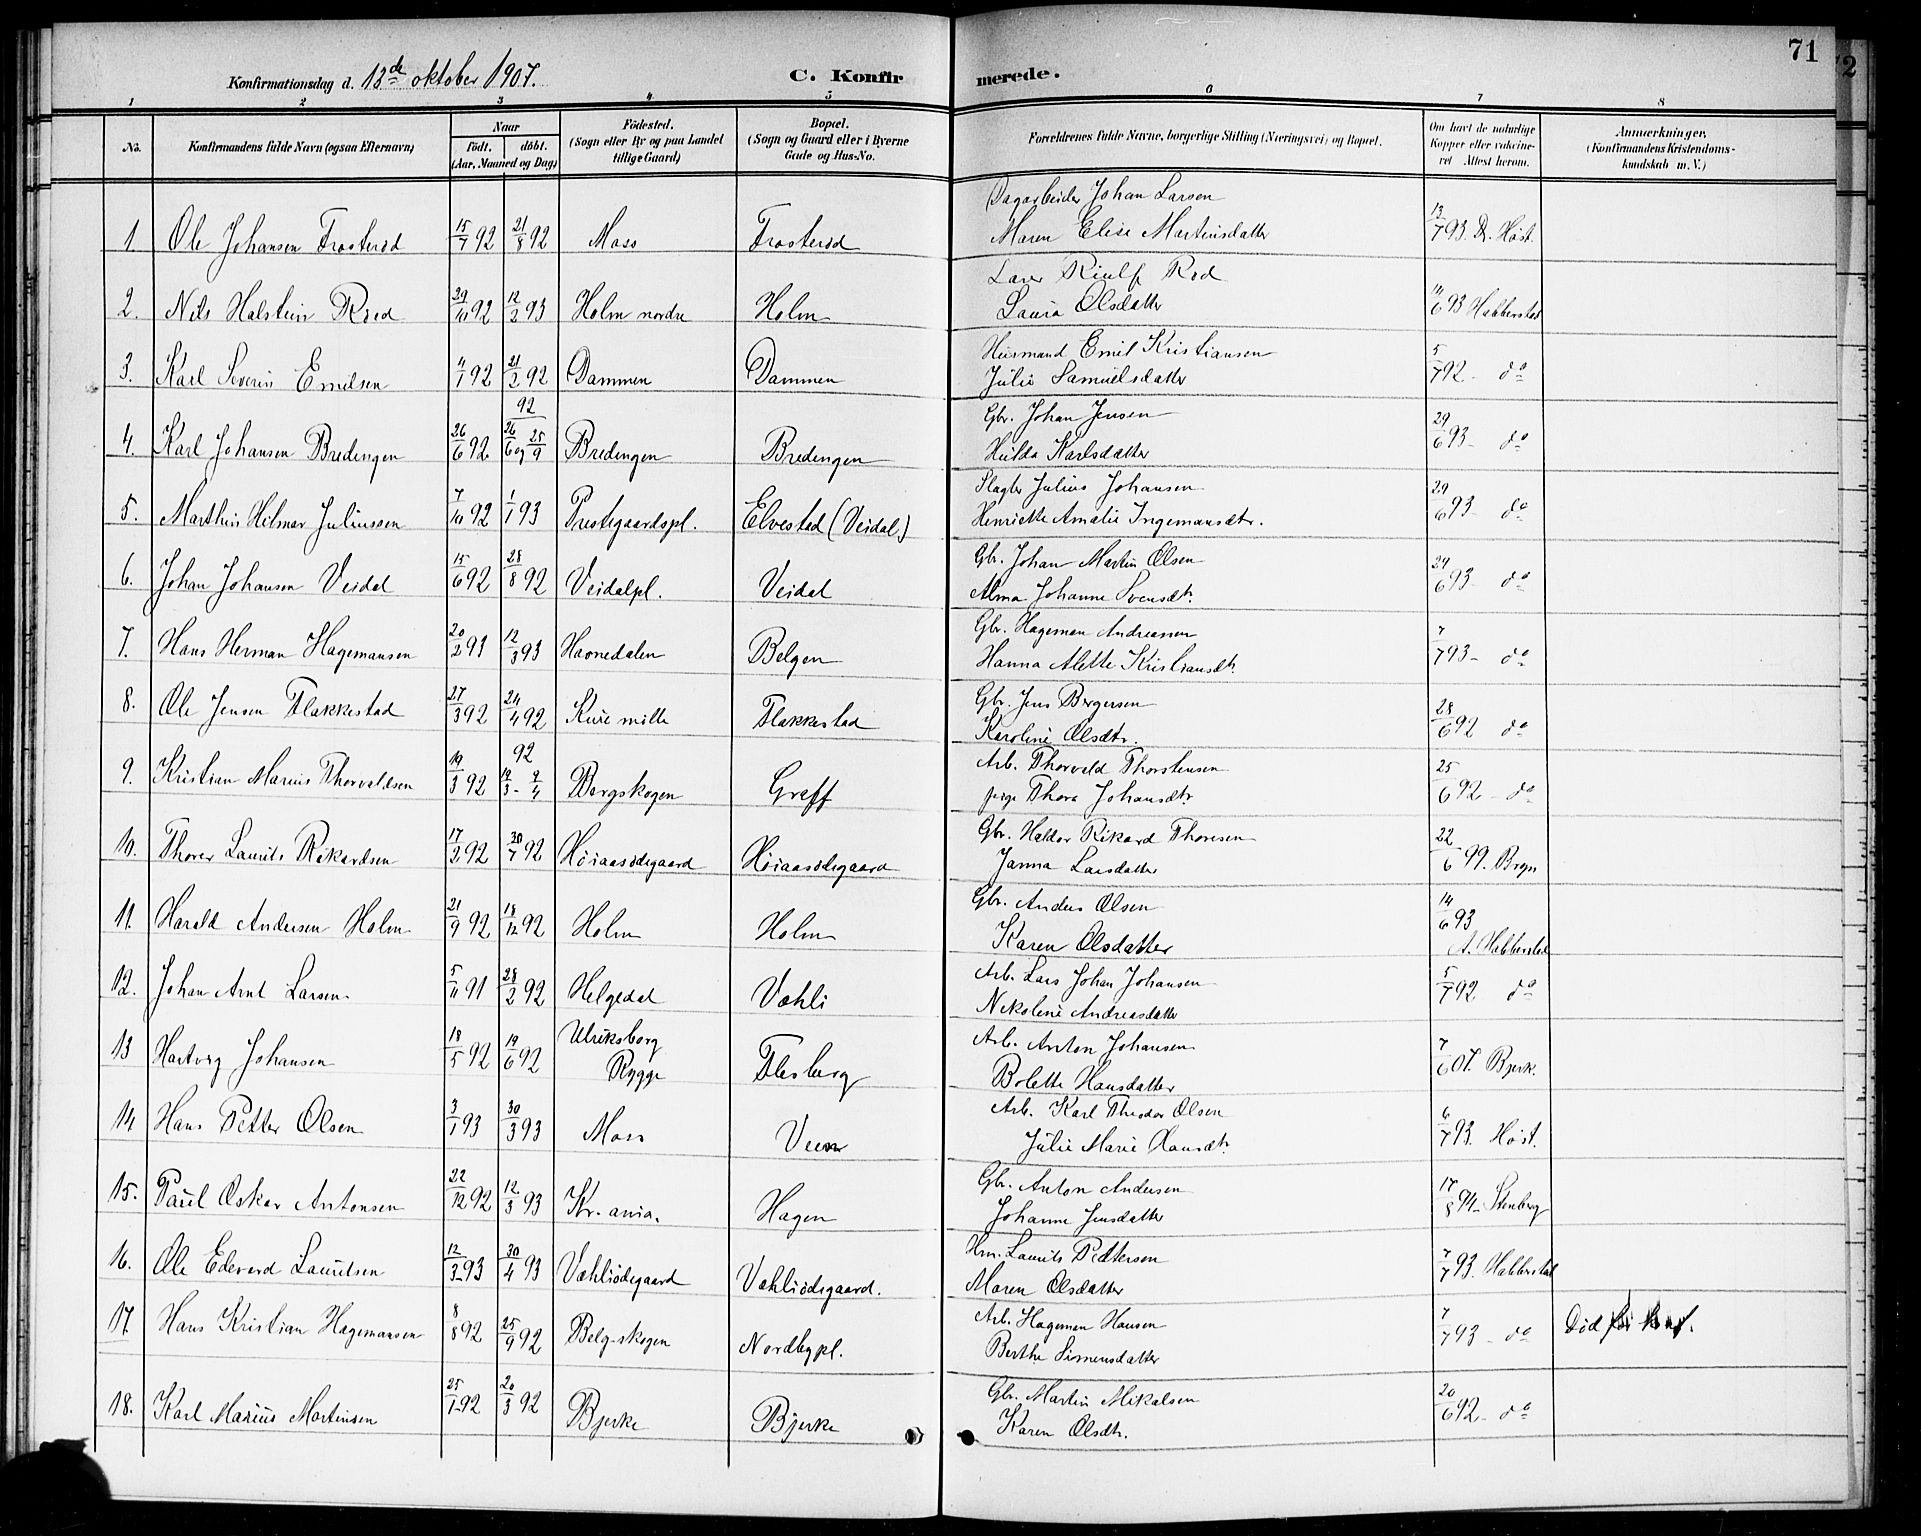 71
Konfirmationsdag d. 13de oktober 1907.
C. Konfirmerede.
1 2 3 4 5 6 7 8
No.
Konfirmandens fulde Navn (ogsaa Efternavn)
Naar
født. døbt.
(Aar, Maaned og Dag)
Fødested.
(Sogn eller By og paa Landet
tillige Gaard)
Bopæl.
(Sogn og Gaard eller i Byerne
Gade og Hus-No.
Forældrenes fulde Navne, borgerlige Stilling (Næringsvei) og Bopæl.
Om havt de naturlige
Kopper eller vakcine-
ret Attest herom.
Anmærkninger.
(Konfirmandens Kristendoms-
kundskab m. V.)
Dagarbeider Johan Larsen
1. Ole Johansen Frosterød 15/7 92 21/8 92 Moss Frosterød Maren Elise Martinsdatter 13/7 93. Dr. Høst.
Rød
2. Nils Halstein Rød 29/10 92 12/2 93 Holm nordre Holm Laura Olsdatter 14/6 93 Habberstad
Husmand Emil Kristiansen
3. Karl Severin Emilsen 4/1 92 21/2 92 Dammen Dammen Julie Samuelsdatter 5/7 92 - do
92
Gbr. Johan Jensen
4. Karl Johansen Bredengen 26/6 92 26/6 og 25/9 Bredengen Bredengen Hulda Karlsdatter 29/6 93 - do
Slagter Julius Johansen
5. Marthin Hilmar Juliussen 7/10 92 1/1 93 Prestegaardspl. Elvestad (Veidal) Henriette Amalie Ingemansdtr. 29/6 93 - do
Gbr. Johan Martin Olsen
6. Johan Johansen Veidal 15/6 92 28/8 92 Veidalpl. Veidal Alma Johanne Svensdtr. 29/6 93 - do
Gbr. Hageman Andreassen
7. Hans Herman Hagemansen 20/2 93 12/3 93 Havnedalen Belgen Hanna Alette Kristiansdtr. 7/7 93 - do
Gbr. Jens Bergersen
8. Ole Jensen Flakkestad 27/3 92 24/4 92 Kure mølle Flakkestad Karoline Olsdtr. 28/6 92 do
92
Arb. Thorvald Thorstensen
9. Kristian Marius Thorvaldsen 19/3 92 19/3 - 9/4 Bergskogen Greff pige Thora Johansdtr 25/6 92 - do
Gbr. Haldor Rikard Thoresen
10. Thorer Laurits Rikardsen 17/2 92 30/7 92 Høiaasødegaard Høiaasødegaard Janna Larsdatter 22/6 99. Bryn
Gbr. Anders Olsen
11. Harald Andersen Holm 21/9 92 18/12 92 Holm Holm Karen Olsdatter 14/6 93 A. Habberstad
Arb. Lars Johan Johansen
12. Johan Arnt Larsen 5/11 91 28/2 92 Helgedal Vahli Nikoline Andreasdatter 5/7 92 do
Arb. Anton Johansen
13 Hartvig Johansen 18/5 92 19/6 92 Ulriksborg Rygge Flesberg Bolette Hansdatter 7/6 07. Bjerk.
Arb. Karl Theodor Olsen
14 Hans Petter Olsen 3/1 93 30/3 93 Moss Veen Julie Marie Hansdtr. 6/7 93. Høst.
Gbr. Anton Andersen
15. Paul Oskar Antonsen 22/12 92 12/3 93 Kr.ania. Hagen Johanne Jensdatter 17/8 94 - Stenberg
Hm. Laurits Pettersen
16. Ole Edvard Lauritsen 12/3 93 30/4 93 Vahliødegaard Vahliødegaard. Maren Olsdatter 7/7 93. Habberstad
Arb. Hageman Hansen
17. Hans Kristian Hagemansen 8/8 92 25/9 92 Belgskogen Nordbypl. Berthe Simensdatter 7/7 93 - do Død
Gbr. Martin Mikalsen
18. Karl Marius Martinsen 25/1 92 20/3 92 Bjerke Bjerke Karen Olsdtr. 20/6 92 - do